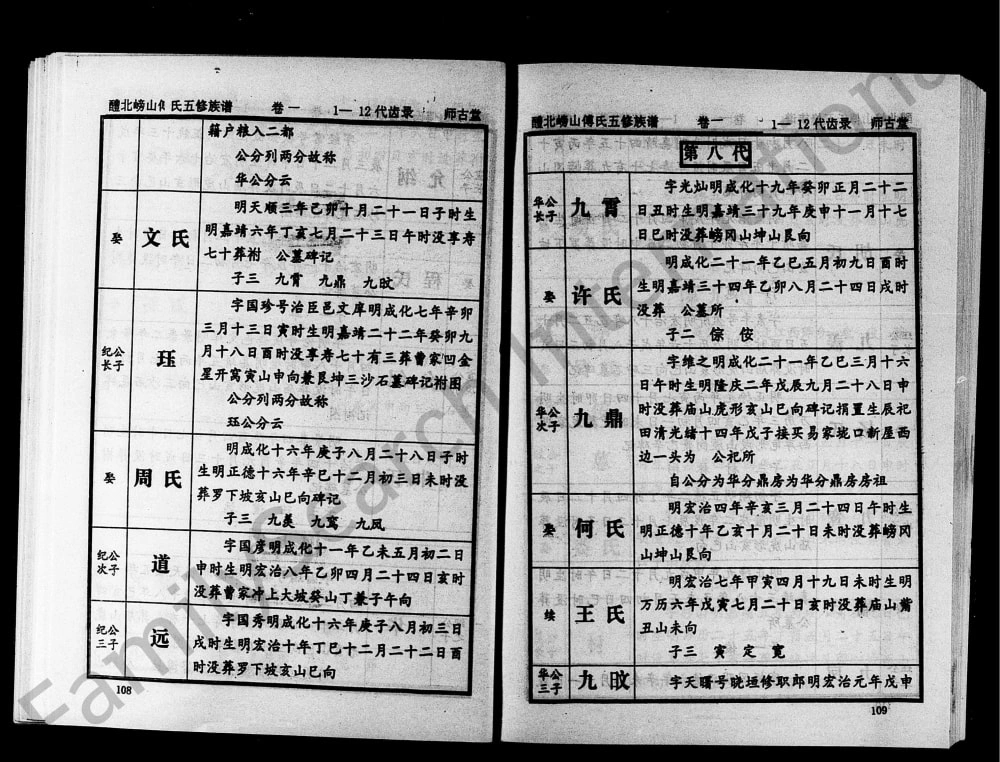 醴北嵭山傅氏五修族谱 卷一 1—12代齿录 师古堂
籍户粮入二都
公分列两分故称
华公分云
娶 文氏
明天顺三年己卯十月二十一日子时生
明嘉靖六年丁亥七月二十三日午时没享寿
七十葬祔 公墓碑记
子三 九霄 九鼎 九旼
纪公长子 珏
字国珍号治臣邑文庠明成化七年辛卯
三月十三日寅时生明嘉靖二十二年癸卯九
月十八日酉时没享寿七十有三葬曹家凹金
星开窝寅山申向兼艮坤三沙石墓碑记祔图
公分列两分故称
珏公分云
娶 周氏
明成化十六年庚子八月二十八日子时
生明正德十六年辛巳十二月初三日未时没
葬罗下坡亥山巳向碑记
子三 九美 九鸾 九凤
纪公次子 道
字国彦明成化十一年乙未五月初二日
申时生明宏治八年乙卯四月二十四日亥时
没葬曹家冲上大坡癸山丁兼子午向
纪公三子 远
字国秀明成化十六年庚子八月初三日
戌时生明宏治十年丁巳十二月二十二日酉
时没葬罗下坡亥山巳向
108
醴北嵭山傅氏五修族谱 卷一 1—12代齿录 师古堂
第八代
华公长子 九霄
字光灿明成化十九年癸卯正月二十二
日丑时生明嘉靖三十九年庚申十一月十七
日巳时没葬嵭冈山坤山艮向
娶 许氏
明成化二十一年乙巳五月初九日酉时
生明嘉靖三十四年乙卯八月二十四日戌时
没葬 公墓所
子二 倧 侒
华公次子 九鼎
字维之明成化二十一年乙巳三月十六
日午时生明隆庆二年戊辰九月二十八日申
时没葬庙山虎形亥山巳向碑记捐置生辰祀
田清光绪十四年戊子接买易家垅口新屋西
边一头为 公祀所
自公分为华分鼎房为华分鼎房房祖
娶 何氏
明宏治四年辛亥三月二十四日午时生
明正德十年乙亥十月二十日未时没葬嵭冈
山坤山艮向
续 王氏
明宏治七年甲寅四月十九日未时生明
万历六年戊寅七月二十日亥时没葬庙山觜
丑山未向
子三 寅 定 宽
华公三子 九旼
字天曙号晓垣修职郎明宏治元年戊申
109
FamilySearch International